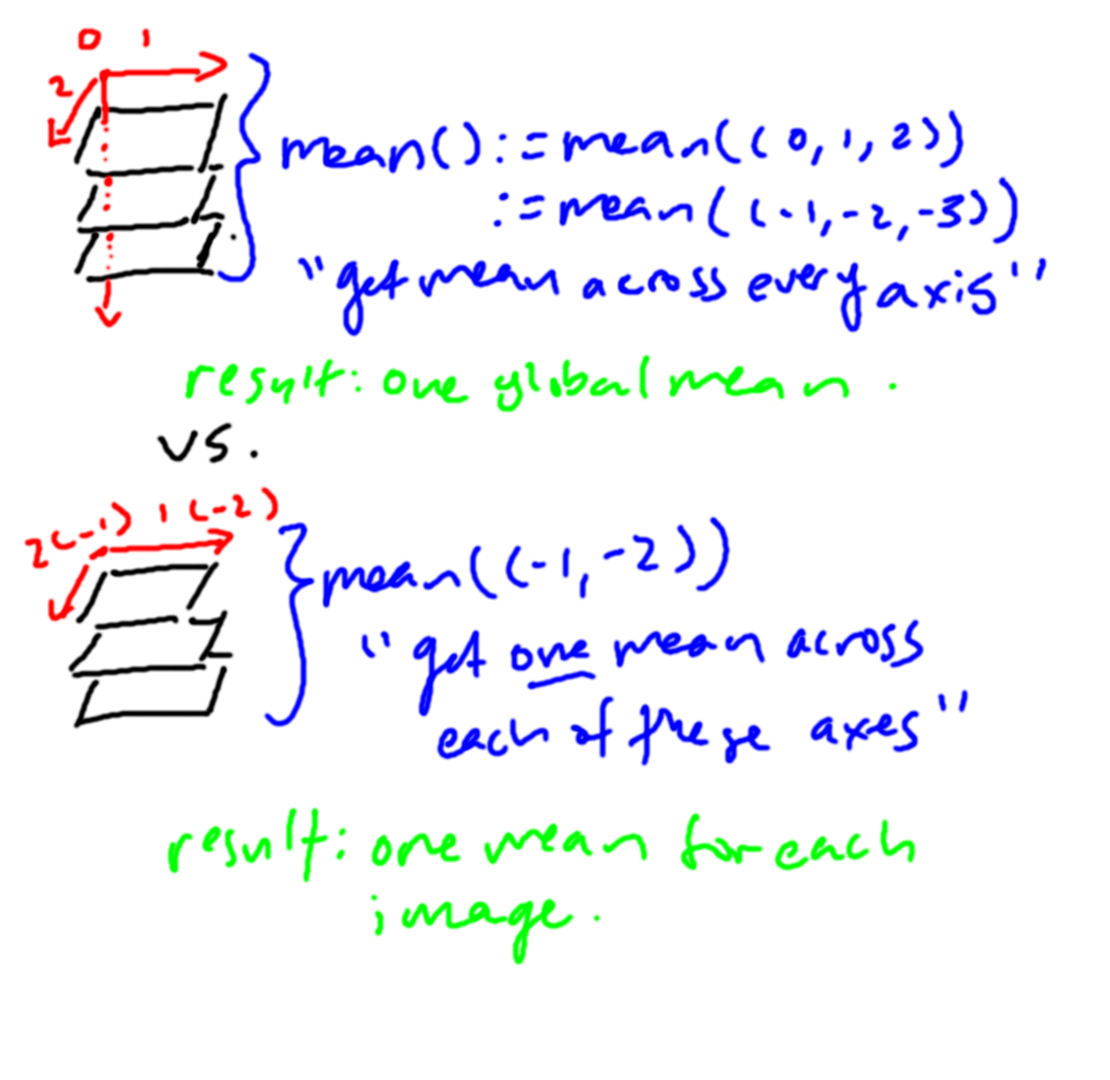 0 1
2
mean() := mean((0, 1, 2))
:= mean((-1, -2, -3))
"get mean across every axis"
result: one global mean.
vs.
2(-1) 1(-2)
mean((-1, -2))
"get one mean across
each of these axes"
result: one mean for each
image.